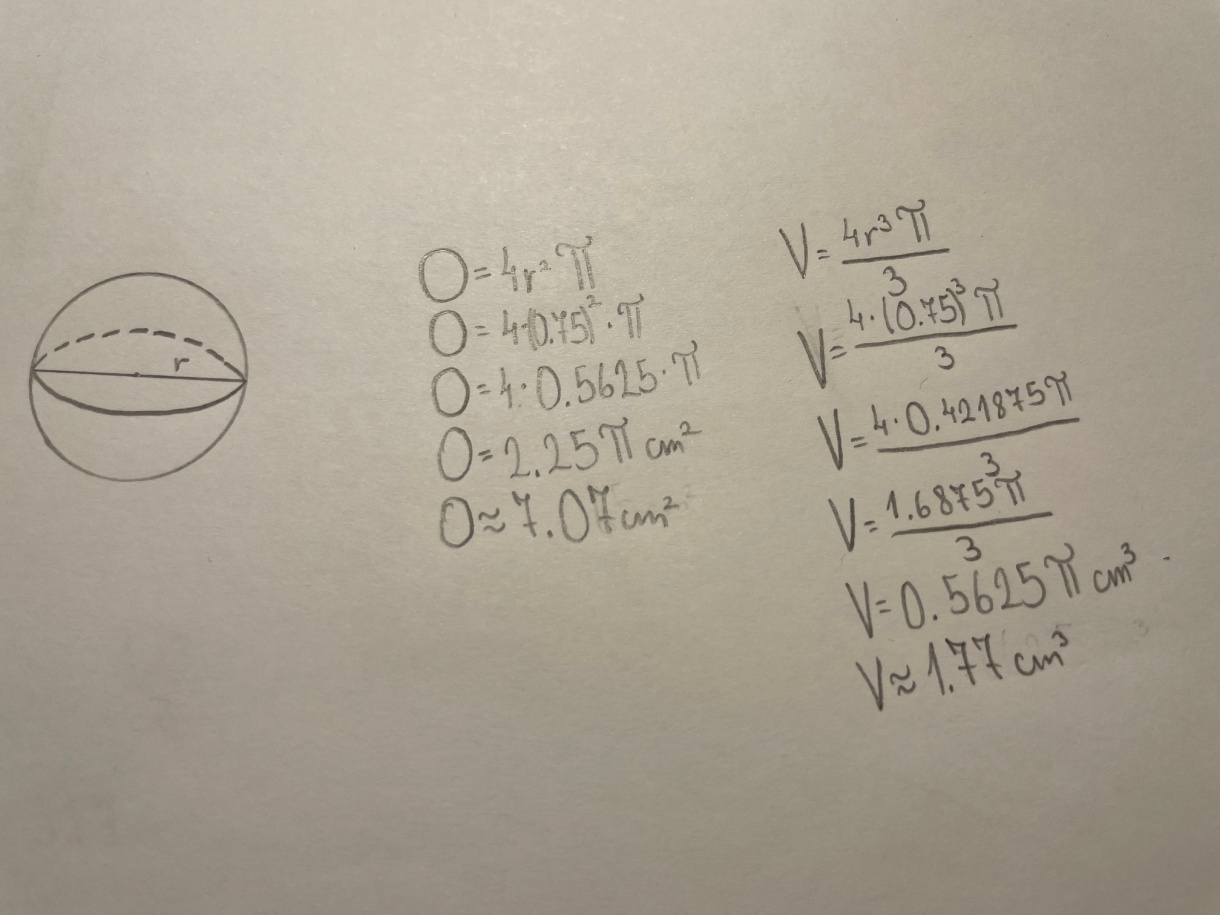 r
O = 4r² π
O = 4·(0.75)² · π
O = 4 · 0.5625 · π
O = 2.25 π cm²
O ≈ 7.07 cm²
V = 4r³ π / 3
V = 4 · (0.75)³ π / 3
V = 4 · 0.421875 π / 3
V = 1.6875 π / 3
V = 0.5625 π cm³
V ≈ 1.77 cm³